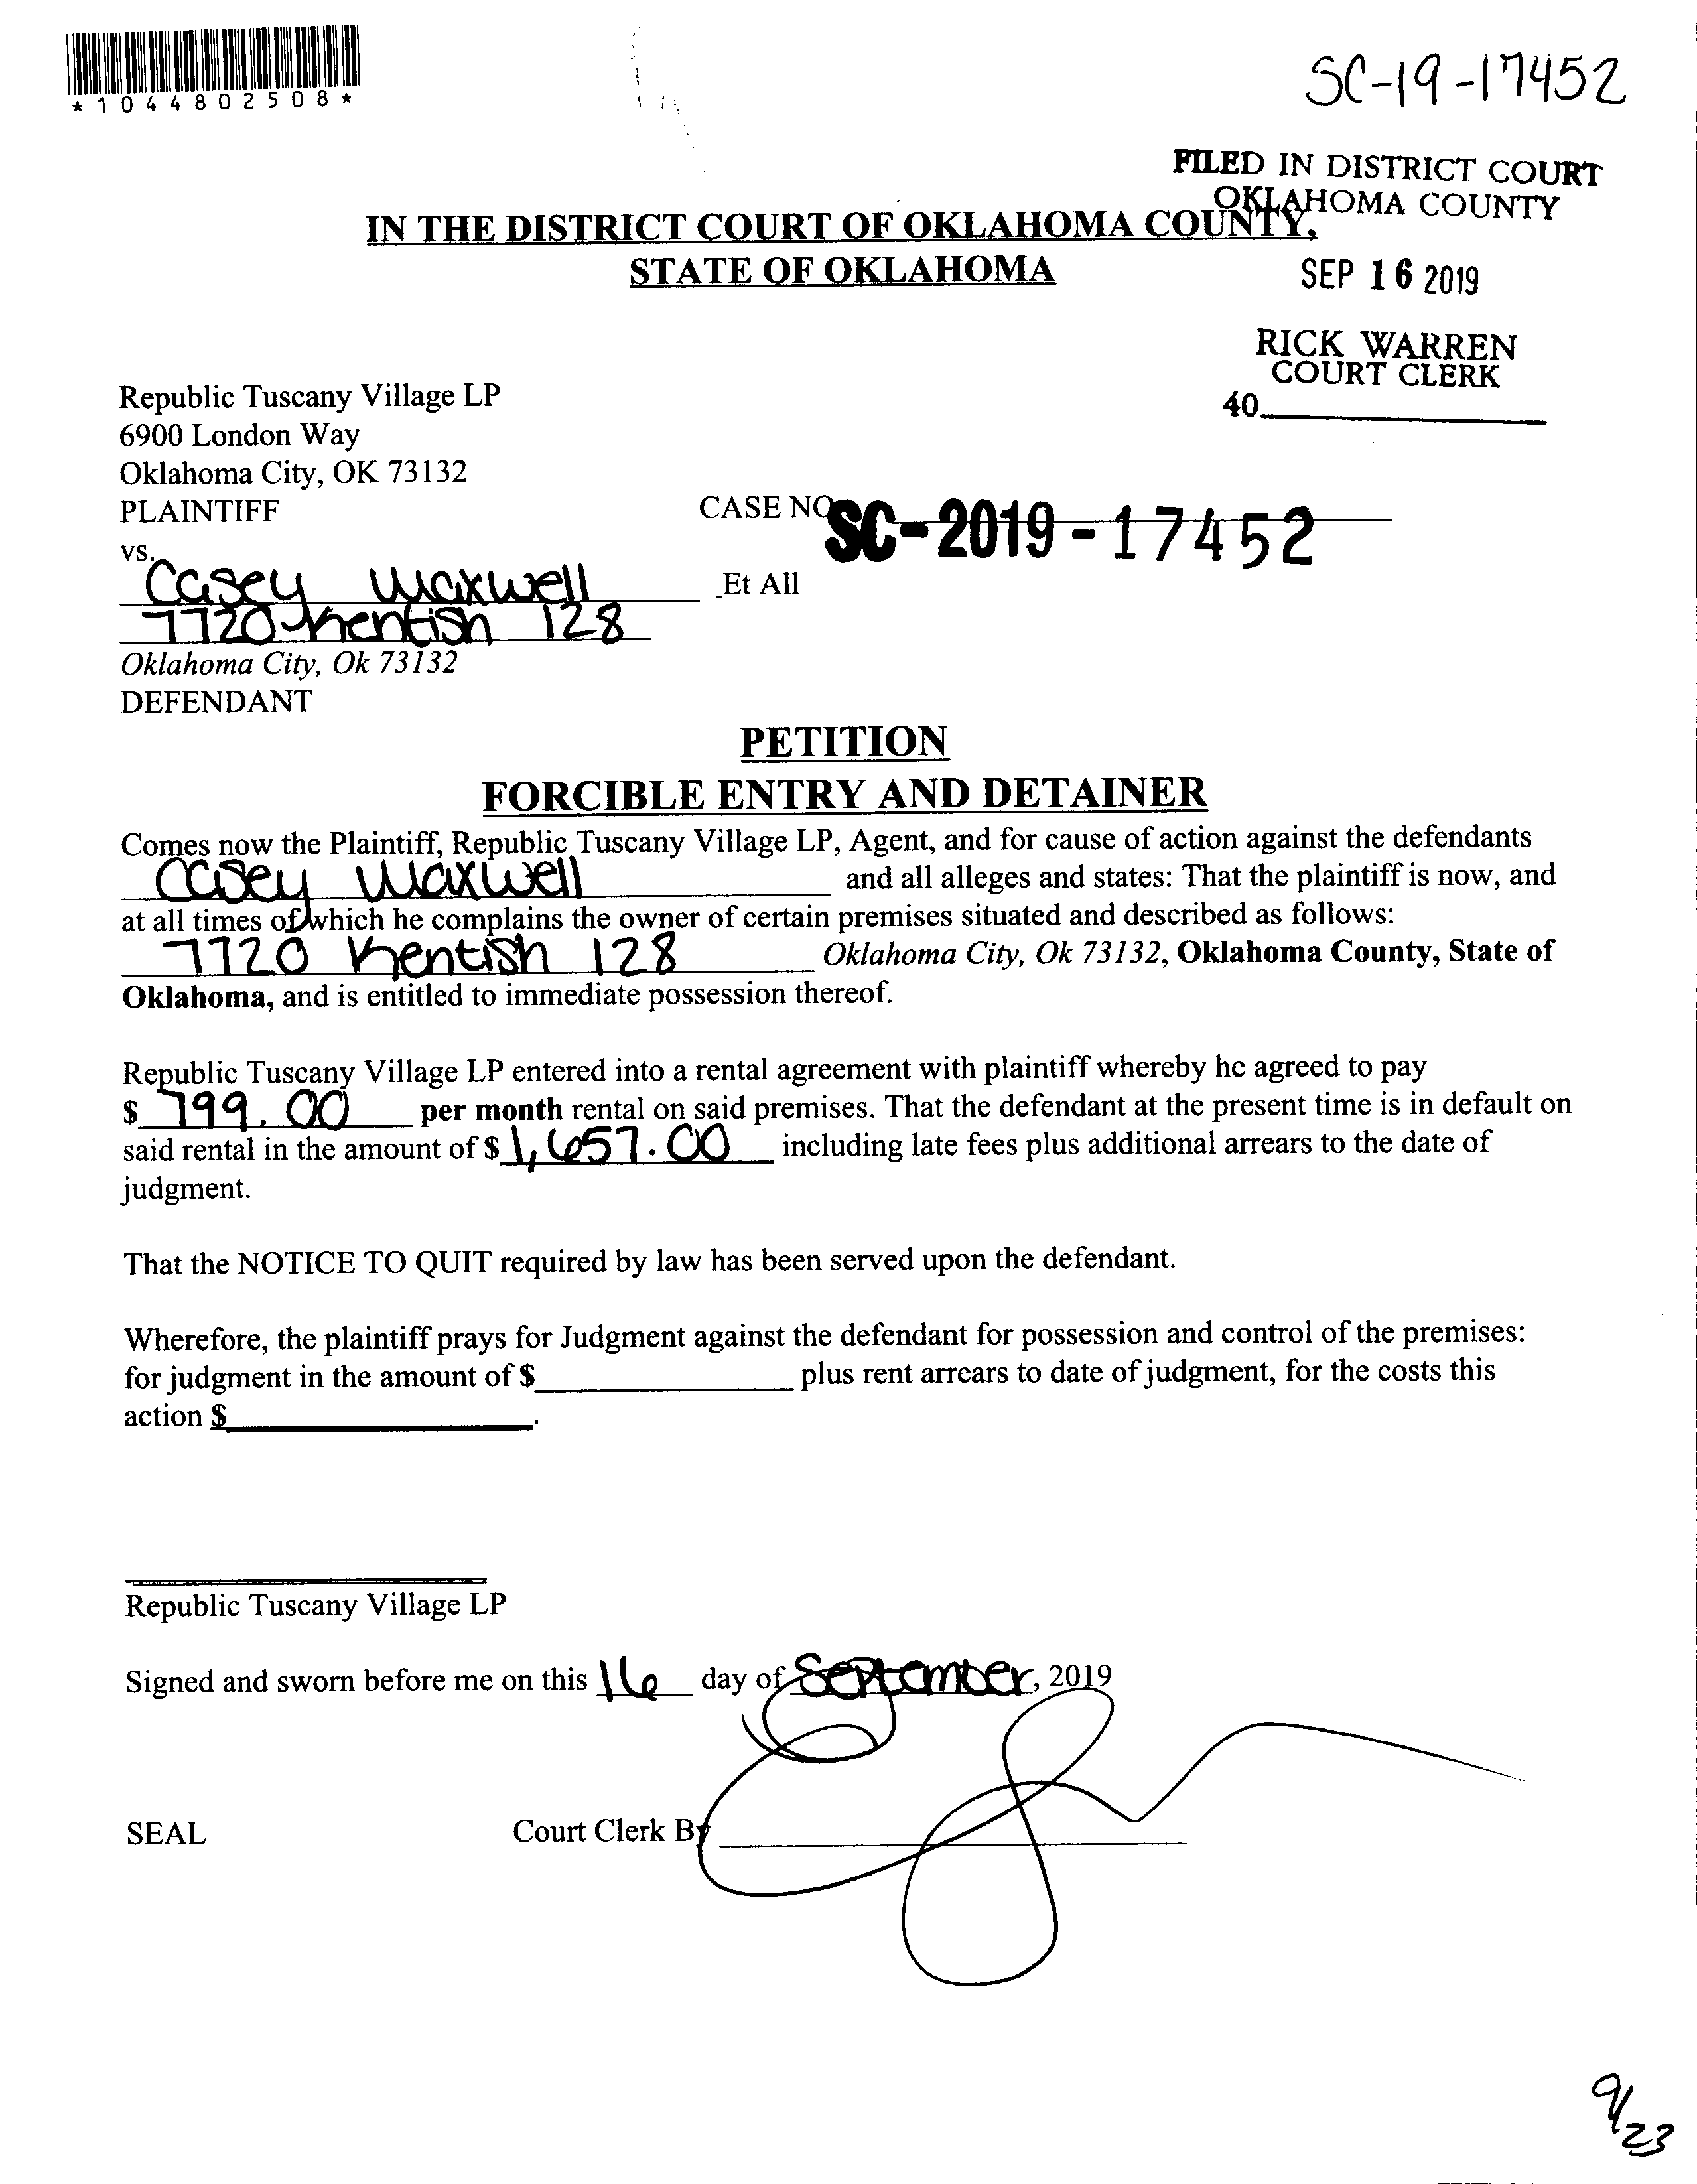 *1044802508*
SC-19-17452
FILED IN DISTRICT COURT
OKLAHOMA COUNTY
IN THE DISTRICT COURT OF OKLAHOMA COUNTY,
STATE OF OKLAHOMA
SEP 16 2019
RICK WARREN
COURT CLERK
40
Republic Tuscany Village LP
6900 London Way
Oklahoma City, OK 73132
PLAINTIFF
CASE NO SC-2019-17452
vs.
Casey Maxwell Et All
7720 Kentish 128
Oklahoma City, Ok 73132
DEFENDANT
PETITION
FORCIBLE ENTRY AND DETAINER
Comes now the Plaintiff, Republic Tuscany Village LP, Agent, and for cause of action against the defendants
Casey Maxwell and all alleges and states: That the plaintiff is now, and
at all times of which he complains the owner of certain premises situated and described as follows:
7720 Kentish 128 Oklahoma City, Ok 73132, Oklahoma County, State of
Oklahoma, and is entitled to immediate possession thereof.
Republic Tuscany Village LP entered into a rental agreement with plaintiff whereby he agreed to pay
$ 799.00 per month rental on said premises. That the defendant at the present time is in default on
said rental in the amount of $ 1,657.00 including late fees plus additional arrears to the date of
judgment.
That the NOTICE TO QUIT required by law has been served upon the defendant.
Wherefore, the plaintiff prays for Judgment against the defendant for possession and control of the premises:
for judgment in the amount of $ plus rent arrears to date of judgment, for the costs this
action $ .
Republic Tuscany Village LP
Signed and sworn before me on this 16 day of September, 2019
SEAL Court Clerk By
9/23